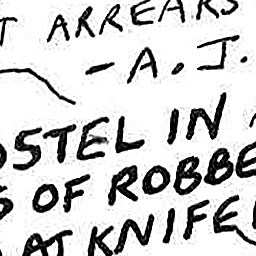 T ARREARS
- A. J.
OSTEL IN
S OF ROBBE
AT KNIFE